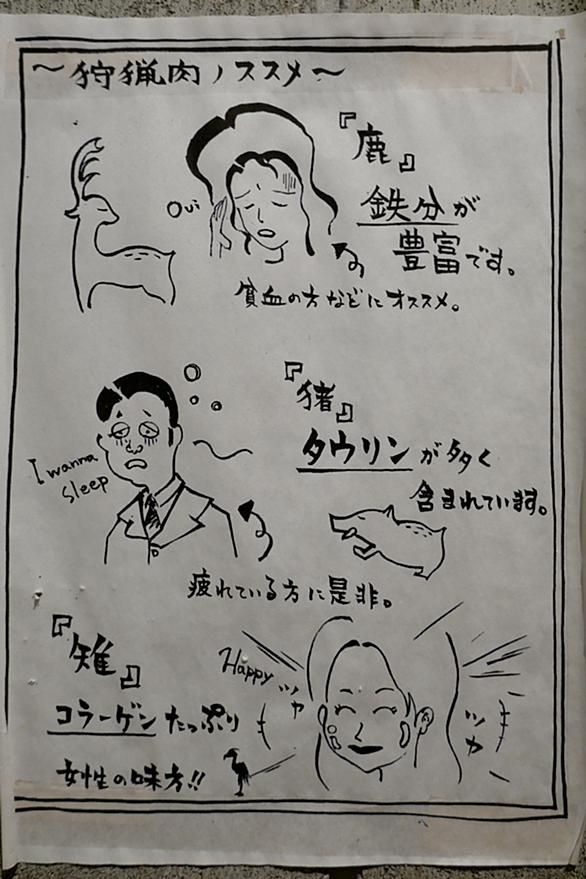 ～狩猟肉ノススメ～
『鹿』
鉄分が
豊富です。
貧血の方などにオススメ。
『猪』
タウリンが多く
含まれています。
I wanna
sleep
疲れている方に是非。
『雉』
コラーゲンたっぷり
女性の味方!!
Happy
ッヤ
ッカ